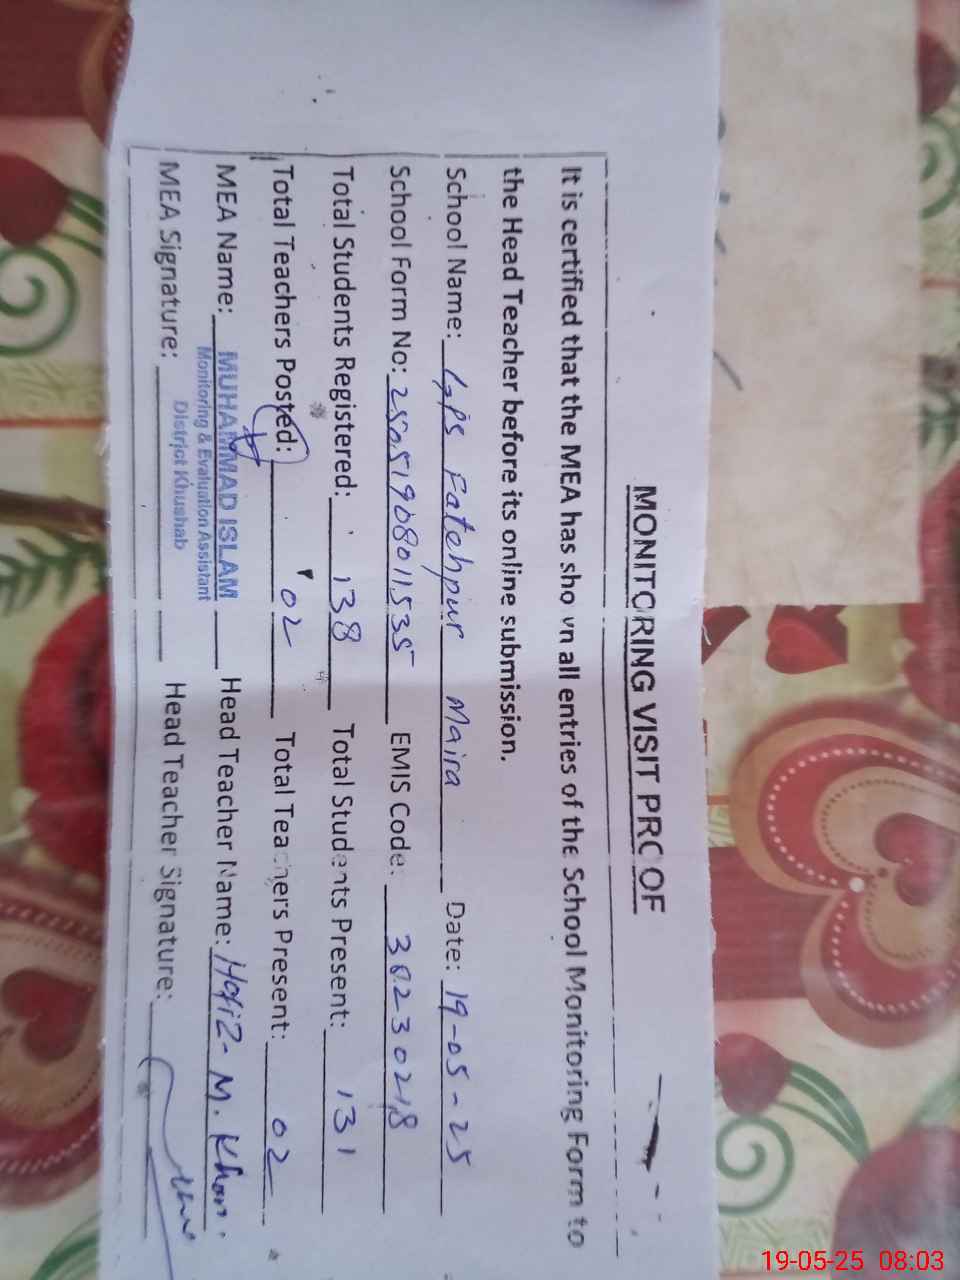 MONITORING VISIT PROOF
It is certified that the MEA has shown all entries of the School Monitoring Form to
the Head Teacher before its online submission.
School Name: Gps Fatehpur Maira Date: 19-05-25
School Form No: 25051908011535 EMIS Code: 38230218
Total Students Registered: 138 Total Students Present: 131
Total Teachers Posted: 02 Total Teachers Present: 02
MEA Name: MUHAMMAD ISLAM Head Teacher Name: Hafiz M. Khan.
Monitoring & Evaluation Assistant
District Khushab
MEA Signature: Head Teacher Signature:
19-05-25 08:03